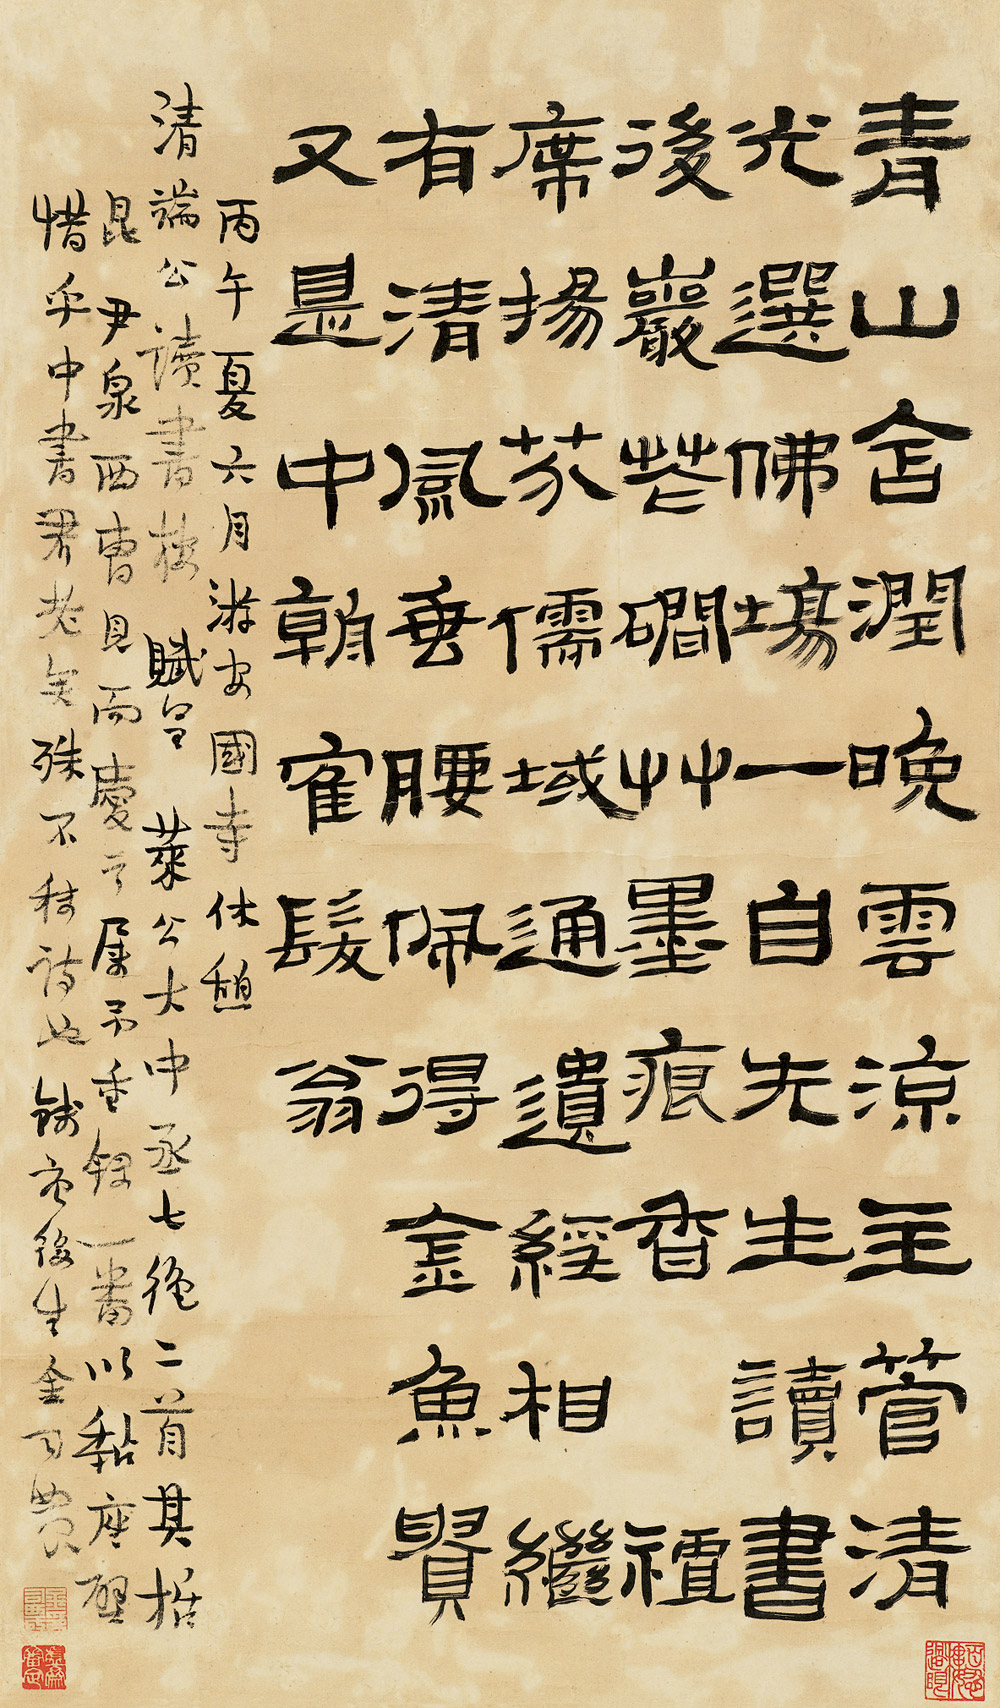 青山舍潤晚雲涼主管清
光選佛場一自先生讀書
後巖花磵艸墨痕香禮
席揚芬儒域通遺經相繼
有清風垂腰佩得金魚貴
又是中朝隺髮翁
丙午夏六月游安國寺休憩
清端公讀書樓賦呈萊公大中丞七絕二首其
昆尹泉西曹見而慶之屬予重錄一番以黏座壁
惜乎中書君老矣殊不稱詩也錢唐後生金司農